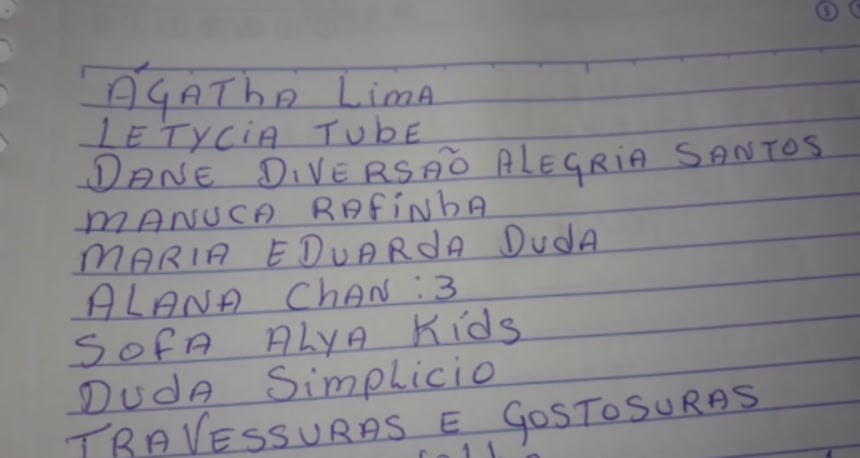 ÁGATHA LIMA
LETYCIA TUBE
DANE DIVERSÃO ALEGRIA SANTOS
MANUCA RAFINHA
MARIA EDUARDA DUDA
ALANA CHAN :3
SOFA ALYA KIDS
DUDA SIMPLICIO
TRAVESSURAS E GOSTOSURAS